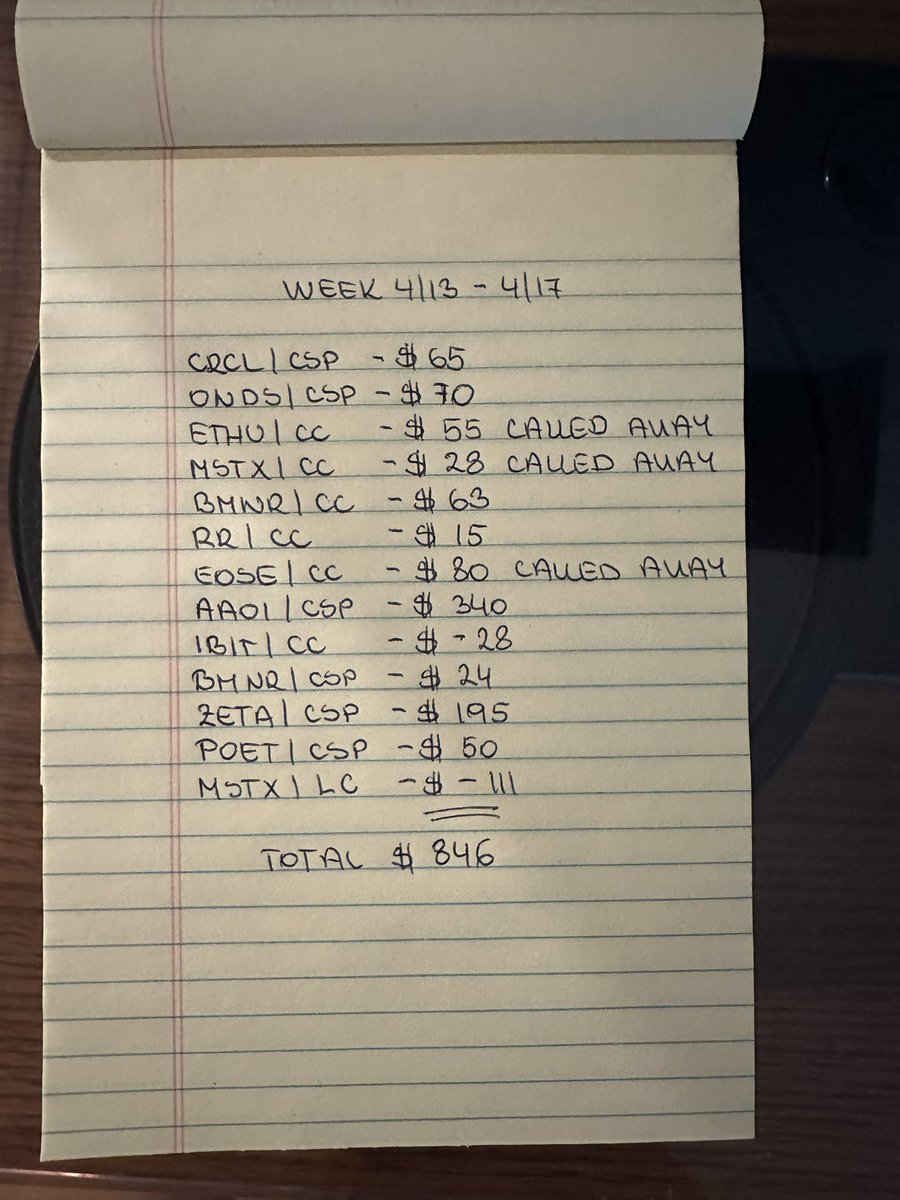 WEEK 4/13 - 4/17
CRCL | CSP - $ 65
ONDS | CSP - $ 70
ETHU | CC - $ 55 CALLED AWAY
MSTX | CC - $ 28 CALLED AWAY
BMNR | CC - $ 63
RR | CC - $ 15
EOSE | CC - $ 80 CALLED AWAY
AAOI | CSP - $ 340
IBIT | CC - $ - 28
BMNR | CSP - $ 24
ZETA | CSP - $ 195
POET | CSP - $ 50
MSTX | LC - $ - 111
TOTAL $ 846